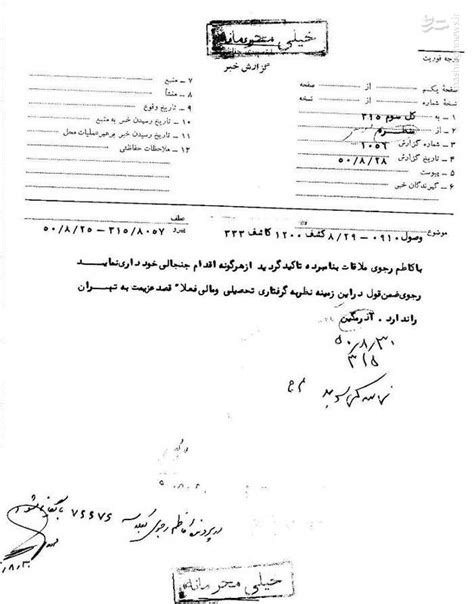 خیلی محرمانه
گزارش خبر
درجه فوریت
صفحه یکم از صفحه
نسخه شماره از نسخه
۱ - به کل سوم ۳۱۵
۲ - از
۳ - شماره گزارش ۱۰۵۶
۴ - تاریخ گزارش ۵۰/۸/۲۸
۵ - پیوست
۶ - گیرندگان خبر
۷ - منبع
۸ - منشأ
۹ - تاریخ وقوع
۱۰ - تاریخ رسیدن خبر به منبع
۱۱ - تاریخ رسیدن خبر به رهبر عملیات محل
۱۲ - ملاحظات حفاظتی
موضوع
عطف
پیرو ۳۱۵/۸۰۵۷ - ۵۰/۸/۲۵
وصول ۰۹۱۰ - ۸/۲۹ کشف ۱۲۰۰ کاشف ۳۳۳
با کاظم رجوی ملاقات بنامبرده تاکید گردید از هرگونه اقدام جنجالی خودداری نماید
رجوی ضمن قول در این زمینه نظر به گرفتاری تحصیلی و مالی فعلا قصد عزیمت به تهران
را ندارد . آذرمگین
۵۰/۸/۳۰
۳۱۵
در پرونده کاظم رجوی
خیلی محرمانه